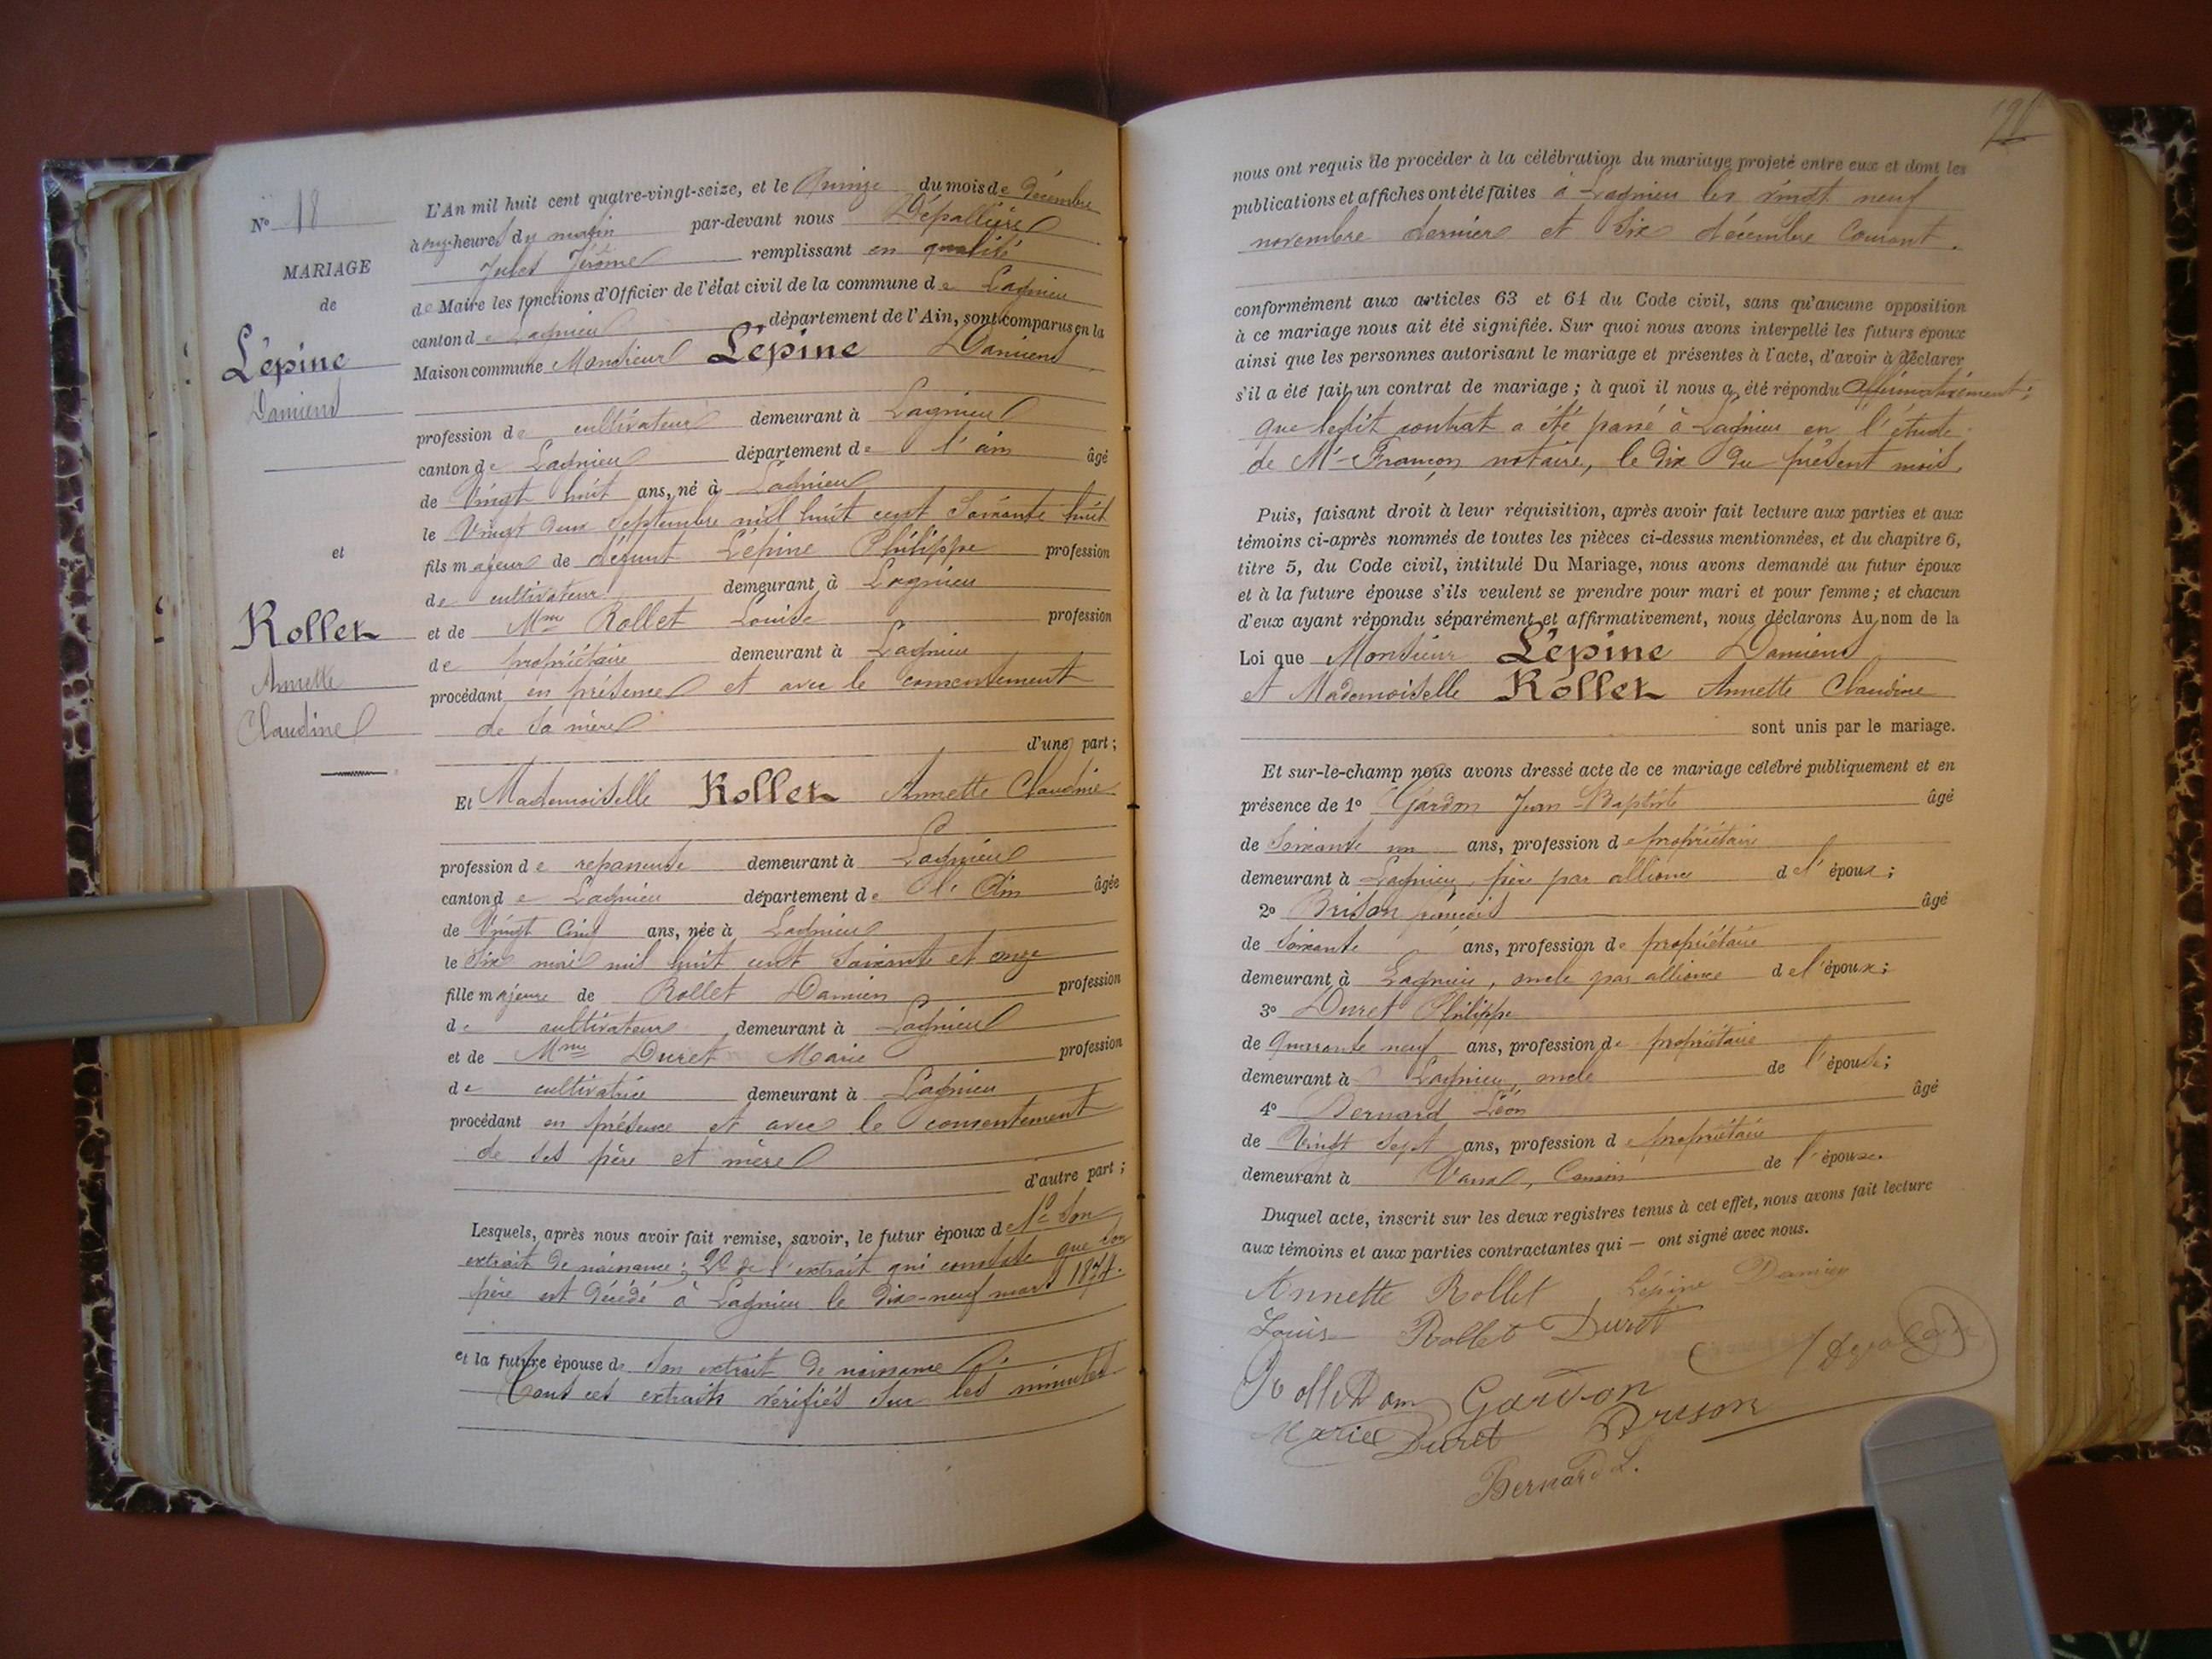 N° 18
MARIAGE
de
Lépine
Damiens
et
Rollet
Annette
Claudine
L'An mil huit cent quatre-vingt-seize, et le Quinze du mois de décembre
à onze heures du matin par-devant nous Dépallière
Jules Jérôme remplissant en qualité
de Maire les fonctions d'Officier de l'état civil de la commune de Lagnieu
canton de Lagnieu département de l'Ain, sont comparus en la
Maison commune Monsieur Lépine Damiens
profession de cultivateur demeurant à Lagnieu
canton de Lagnieu département de l'ain âgé
de Vingt huit ans, né à Lagnieu
le Vingt deux Septembre mil huit cent Soixante huit
fils majeur de défunt Lépine Philippe profession
de cultivateur demeurant à Lagnieu
et de Mme Rollet Louise profession
de propriétaire demeurant à Lagnieu
procédant en présence et avec le consentement
de sa mère
d'une part;
Et Mademoiselle Rollet Annette Claudine
profession de repasseuse demeurant à Lagnieu
canton de Lagnieu département de l'Ain âgée
de Vingt Cinq ans, née à Lagnieu
le Six mai mil huit cent Soixante et onze
fille majeure de Rollet Damien profession
de cultivateur demeurant à Lagnieu
et de Mme Duret Marie profession
de cultivatrice demeurant à Lagnieu
procédant en présence et avec le consentement
de ses père et mère
d'autre part;
Lesquels, après nous avoir fait remise, savoir, le futur époux de 1° son
extrait de naissance; 2° de l'extrait qui constate que son
père est décédé à Lagnieu le dix-neuf mars 1874.
et la future épouse de son extrait de naissance
Tous ces extraits vérifiés sur les minutes
nous ont requis de procéder à la célébration du mariage projeté entre eux et dont les
publications et affiches ont été faites à Lagnieu les vingt neuf
novembre dernier et Six décembre Courant.
conformément aux articles 63 et 64 du Code civil, sans qu'aucune opposition
à ce mariage nous ait été signifiée. Sur quoi nous avons interpellé les futurs époux
ainsi que les personnes autorisant le mariage et présentes à l'acte, d'avoir à déclarer
s'il a été fait un contrat de mariage; à quoi il nous a été répondu affirmativement;
que ledit contrat a été passé à Lagnieu en l'étude
de Me Françon notaire, le dix du présent mois.
Puis, faisant droit à leur réquisition, après avoir fait lecture aux parties et aux
témoins ci-après nommés de toutes les pièces ci-dessus mentionnées, et du chapitre 6,
titre 5, du Code civil, intitulé Du Mariage, nous avons demandé au futur époux
et à la future épouse s'ils veulent se prendre pour mari et pour femme; et chacun
d'eux ayant répondu séparément et affirmativement, nous déclarons Au nom de la
Loi que Monsieur Lépine Damiens
et Mademoiselle Rollet Annette Claudine
sont unis par le mariage.
Et sur-le-champ nous avons dressé acte de ce mariage célébré publiquement et en
présence de 1° Gardon Jean Baptiste âgé
de Soixante un ans, profession de propriétaire
demeurant à Lagnieu, père par alliance de l'époux;
2° Brison françois âgé
de Soixante ans, profession de propriétaire
demeurant à Lagnieu, oncle par alliance de l'époux;
3° Duret Philippe
de Quarante neuf ans, profession de propriétaire
demeurant à Lagnieu, oncle de l'épouse;
4° Bernard Léon âgé
de Vingt Sept ans, profession de propriétaire
demeurant à Cousin de l'épouse.
Duquel acte, inscrit sur les deux registres tenus à cet effet, nous avons fait lecture
aux témoins et aux parties contractantes qui — ont signé avec nous.
Annette Rollet Lépine Damien
Louis Rollet Duret
Rollet Dam Gardon
Marie Duret Brison
Bernard L.